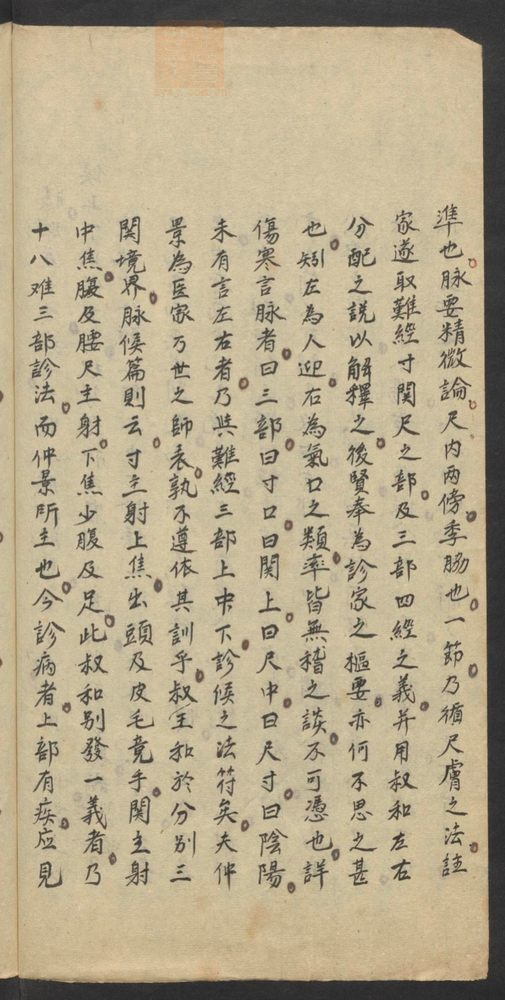 準也脉要精微論尺内兩傍季脇也一節乃循尺膚之法註
家遂取難經寸関尺之部及三部四經之義并用叔和左右
分配之説以解釋之後賢奉為診家之樞要亦何不思之甚
也矧左為人迎右為氣口之類率皆無稽之談不可憑也詳
傷寒言脉者曰三部曰寸口曰関上曰尺中曰尺寸曰陰陽
未有言左右者乃與難經三部上中下診候之法符矣夫仲
景為医家万世之師表孰不遵依其訓乎叔王和於分别三
関境界脉候篇則云寸主射上焦出頭及皮毛竟手関主射
中焦腹及腰尺主射下焦少腹及足此叔和别發一義者乃
十八难三部診法而仲景所主也今診病者上部有疾应見